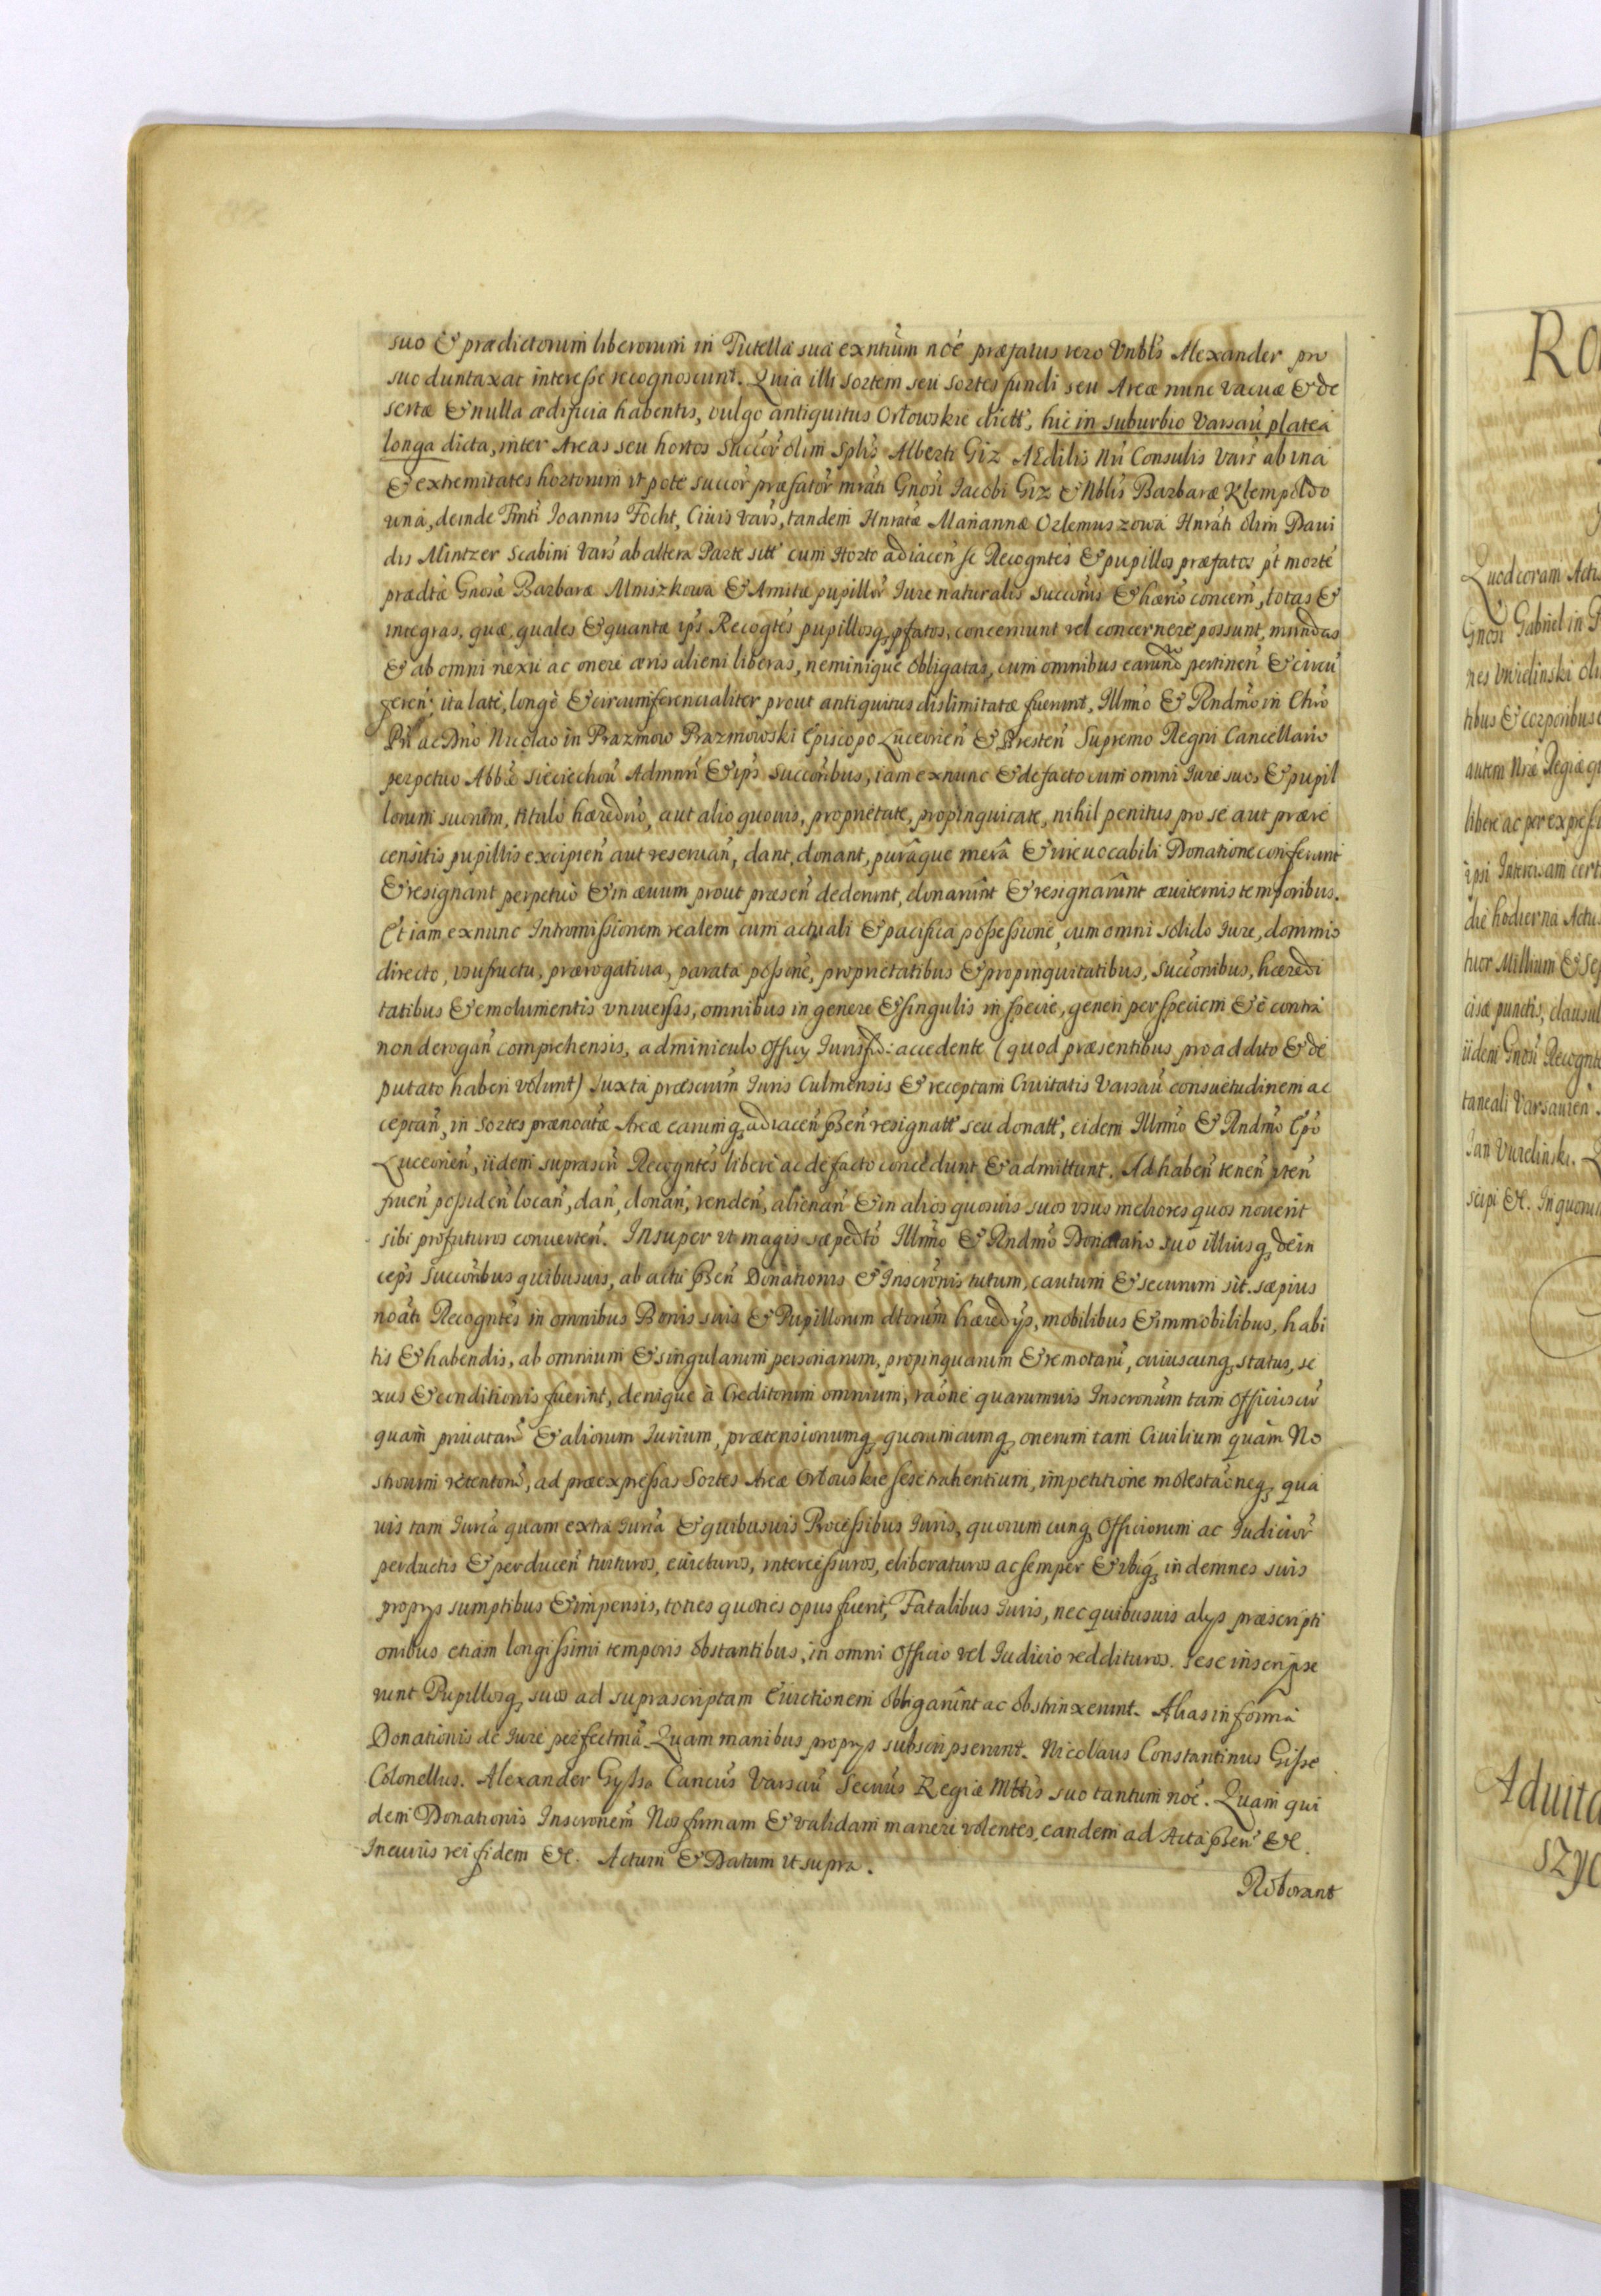 suo & prædictorum liberorum in Tutella sua exntium noe præfatus vero Vnbls Alexander pro
suo duntaxat interesse recognoscunt. Quia illi sortem seu sortes fundi seu Areæ nunc vacuæ & de
sertæ & nulla ædificia habentis, vulgo antiquitus Orłowskie dictt, hic in suburbio Varsau platea
longa dicta, inter Areas seu hortos Succor olim Splis Alberti Giz AEdilis Nri Consulis Vars ab una
& extremitates hortorum ut pote succor præfator mrati Gnosi Iacobi Giz & Nblis Barbaræ Klempoldo
una, deinde Fmti Ioannis Focht, Ciuis Vars, tandem Hnratæ Mariannæ Orlemuszowa Hnrati olim Daui
dis Mintzer Scabini Vars ab altera Parte sitt cum Horto adiacen se Recogntes & pupillos præfatos pt morte
prædta Gnosæ Barbaræ Mniszkowa & Amitæ pupillor Iure naturalis succonis & hærio concern, totas &
integras, quæ, quales & quantæ ips Recogtes pupillosq pfatos, concernunt vel concernere possunt, mundas
& ab omni nexu ac onere æris alieni liberas, neminique obligatas, cum omnibus earund pertinen & circu
feren, ita late, longe & circumferencialiter prout antiquitus dislimitatæ fuerunt, Illmo & Rndmo in Chro
Pri ac Dno Nicolao in Prazmow Prazmowski Episcopo Luceorien & Bresten Supremo Regni Cancellario
perpetuo Abbæ Sieciechou Admnri & ips Succoribus, iam exnunc & de facto cum omni Iure suo & pupil
lorum suorum, titulo hæredrio, aut alio quouis, proprietate, propinquitate, nihil penitus pro se aut prære
censitis pupillis excipien aut reseruan, dant, donant, purâque merâ & irreuocabili Donatione conferunt
& resignant perpetuo & in æuum prout præsen dederunt, donarunt & resignarunt æuiternis temporibus.
Et iam exnunc Intromissionem realem cum actuali & pacifica possessione, cum omni solido Iure, dominio
directo, usufructu, prærogatiua, parata possne, proprietatibus & propinquitatibus, succonibus, hæredi
tatibus & emolumentis vniuersis, omnibus in genere & singulis in specie, generi per speciem & e contra
non derogan comprehensis, adminiculo Officy Iurisd: accedente (quod præsentibus pro addito & de
putato haberi volunt) Iuxta præscrium Iuris Culmensis & receptam Ciuitatis Varsau consuetudinem ac
ceptan, in sortes prænoatæ Areæ earumq adiacen psen resignatt seu donatt, eidem Illmo & Rndmo Epo
Luceorien, iidem suprascri Recogntes libere ac de facto concedunt & admittunt. Ad haben tenen uten
fruen possiden locan, dan, donan, venden, alienan & in alios quosuis suos usus meliores quos nouerit
sibi profuturos conuerten. Insuper ut magis sæpedto Illmo & Rndmo Donatario suo illiusq dein
ceps Succoribus quibusuis, ab actu psen Donationis & Inscronis tutum, cautum & securum sit. sæpius
noati Recogntes in omnibus Bonis suis & Pupillorum dtorum hæredys, mobilibus & immobilibus, habi
tis & habendis, ab omnium & singularum personarum, propinquarum & remotaru, cuiuscunq status, se
xus & conditionis fuerint, denique à Creditorum omnium, raône quarumuis Inscronum tam Officioscu
quam priuatarum & aliorum Iurium, prætensionumq quorumcumq onerum tam Ciuilium quàm No
strorum retentoru, ad præexpressas Sortes Areæ Orłouskie sese trahentium, impetitione molestaoneq qua
uis tam Iurea quam extra Iurea & quibusuis Processibus Iuris, quorumcunq Officiorum ac Iudicior
perductis & perducen tuituros, euicturos, intercessuros, eliberaturos ac semper & vbiq indemnes suis
proprys sumptibus & impensis, toties quoties opus fuerit, Fatalibus Iuris, nec quibusuis alys præscripti
onibus etiam longissimi temporis obstantibus, in omni Officio vel Iudicio reddituros. Sese inscripse
runt Pupillosq suos ad suprascriptam Euictionem obligarunt ac obstrinxerunt. Alias in forma
Donationis de Iure perfectma. Quam manibus proprys subscripserunt. Nicolaus Constantinus Gisse
Colonellus. Alexander Gyssa Cancus Varsau Secrius Regiæ Mttis suo tantum noe. Quam qui
dem Donationis Inscronem Nos firmam & validam manere volentes, eandem ad Acta psen &c.
In cuius rei fidem &c. Actum & Datum ut supra.
Roborant
Ro
Quod coram Actis
Gnosi Gabriel in P
libere ac per expressu
ipsi Intercisam cert
die hodierna Actu
tuor Millium & Sep
cisæ punctis, clausul
iidem Gnosi Recognte
taneali Varsauien
scipi &c. In quorum
Aduita
szyc